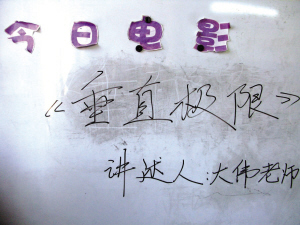 今日电影
《垂直极限》
讲述人:大伟老师